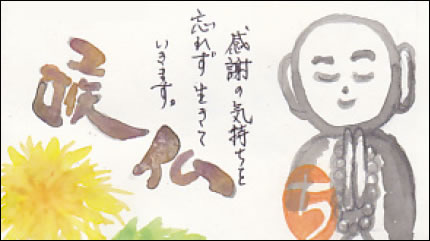 感謝の気持ちを
忘れず生きて
いきます。
仏
ち